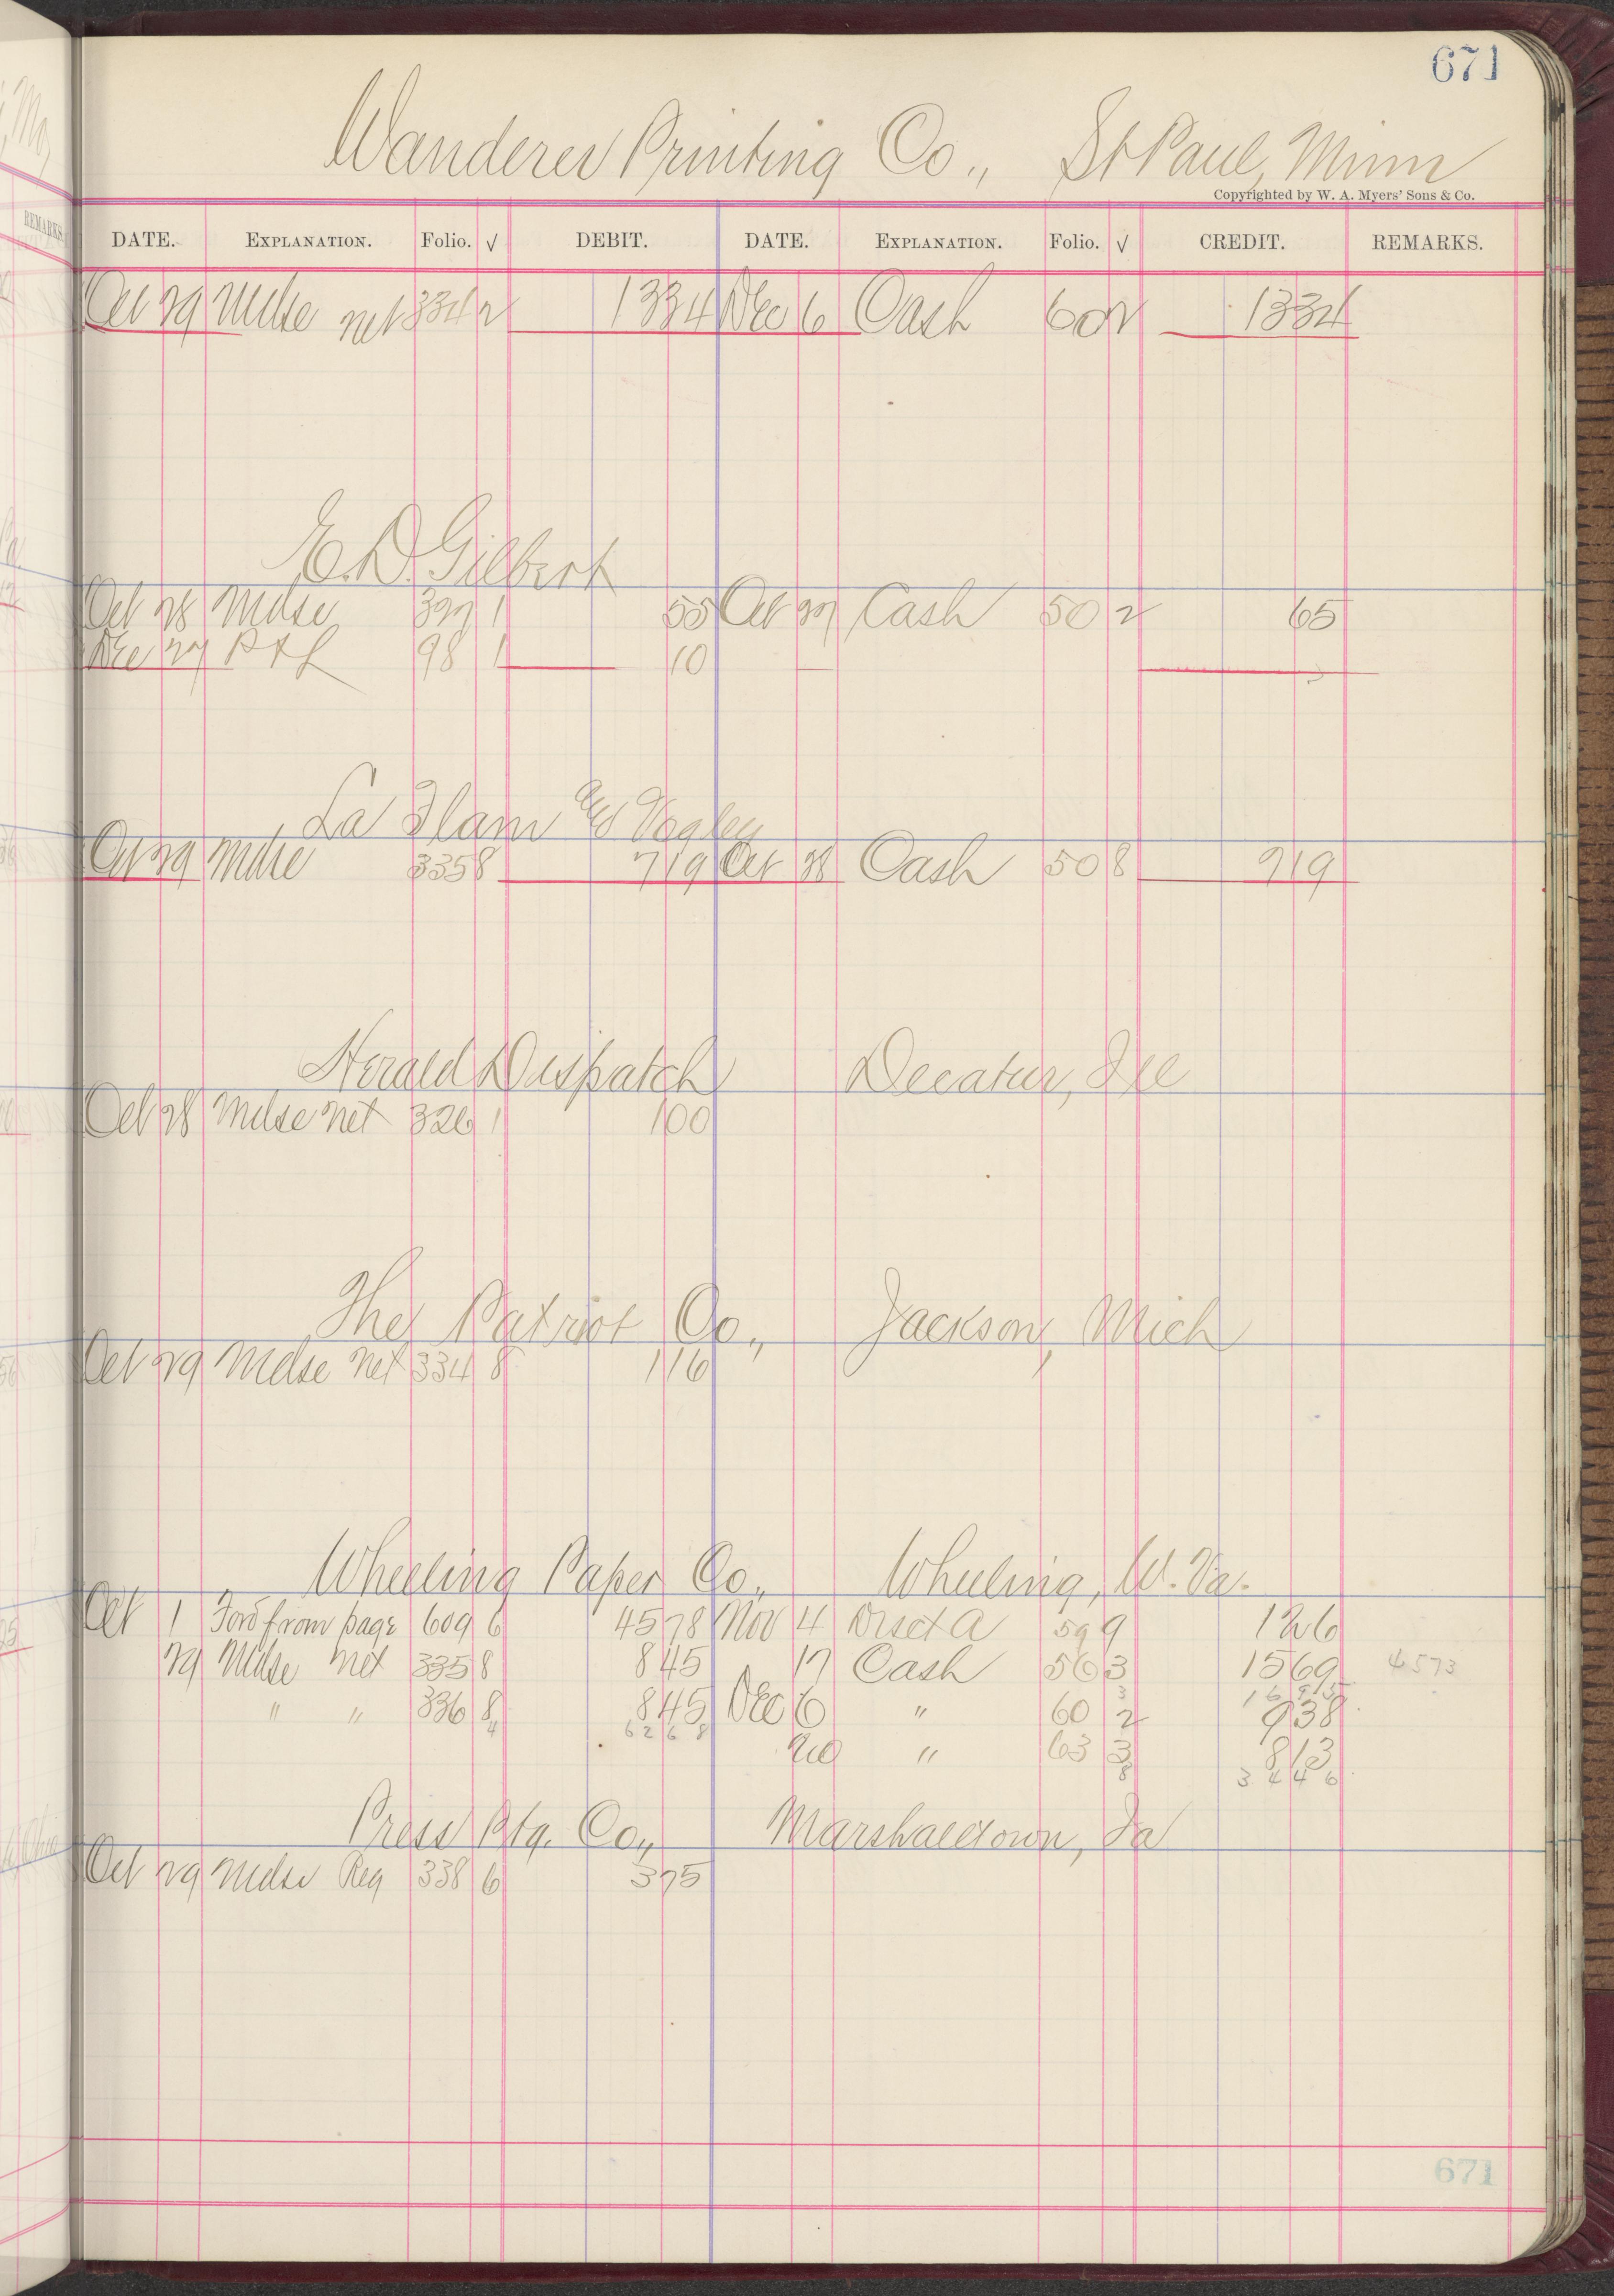 671
Wanderer Printing Co., St Paul, Minn
Copyrighted by W. A. Myers' Sons & Co.
DATE. EXPLANATION. Folio. √ DEBIT. DATE. EXPLANATION. Folio. √ CREDIT. REMARKS.
Oct 29 Mdse net 334 2 1334 Dec 6 Cash 60 2 1334
E. D. Gilbert
Oct 28 Mdse 327 1 55 Oct 27 Cash 50 2 65
Dec 27 P & L 98 1 10
La Flam & Vogley
Oct 29 Mdse 335 8 719 Oct 28 Cash 50 8 719
Herald Dispatch Decatur, Ill
Oct 28 Mdse net 326 1 100
The Patriot Co., Jackson, Mich
Oct 29 Mdse net 334 8 116
Wheeling Paper Co., Wheeling, W. Va.
Oct 1 Ford from page 609 6 4578 Nov 4 Disct A 59 9 126
29 Mdse net 335 8 845 17 Cash 56 3 1569 4573
" " 336 8 845 Dec 6 " 60 2 938
6268
20 " 63 3 813
3446
Press Ptg. Co., Marshalltown, Ia
Oct 29 Mdse Reg 338 6 375
671